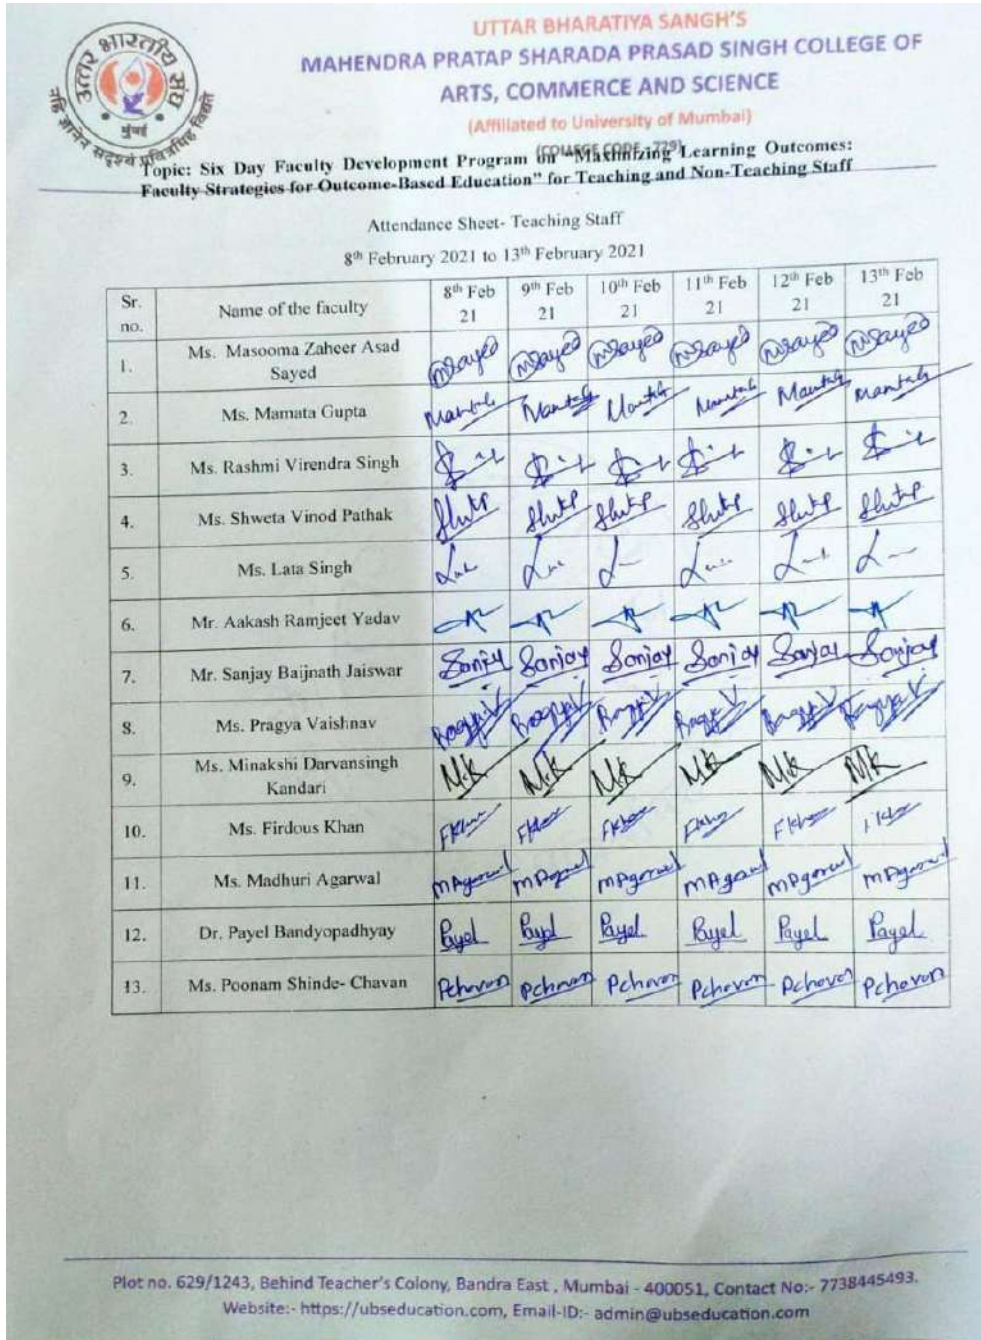 उत्तर भारतीय संघ
मुंबई
नहि ज्ञानेन सदृश्यं पवित्रमिह विद्यते
UTTAR BHARATIYA SANGH'S
MAHENDRA PRATAP SHARADA PRASAD SINGH COLLEGE OF
ARTS, COMMERCE AND SCIENCE
(Affiliated to University of Mumbai)
(COLLEGE CODE - 729)
Topic: Six Day Faculty Development Program on "Maximizing Learning Outcomes:
Faculty Strategies for Outcome-Based Education" for Teaching and Non-Teaching Staff
Attendance Sheet- Teaching Staff
8th February 2021 to 13th February 2021
Sr. no. Name of the faculty 8th Feb 21 9th Feb 21 10th Feb 21 11th Feb 21 12th Feb 21 13th Feb 21
1. Ms. Masooma Zaheer Asad Sayed MSayed MSayed MSayed MSayed MSayed MSayed
2. Ms. Mamata Gupta
3. Ms. Rashmi Virendra Singh
4. Ms. Shweta Vinod Pathak
5. Ms. Lata Singh
6. Mr. Aakash Ramjeet Yadav
7. Mr. Sanjay Baijnath Jaiswar Sanjay Sanjay Sanjay Sanjay Sanjay Sanjay
8. Ms. Pragya Vaishnav
9. Ms. Minakshi Darvansingh Kandari M.K M.K M.K M.K M.K M.K
10. Ms. Firdous Khan
11. Ms. Madhuri Agarwal MAgarwal MAgarwal MAgarwal MAgarwal MAgarwal MAgarwal
12. Dr. Payel Bandyopadhyay Payel Payel Payel Payel Payel Payel
13. Ms. Poonam Shinde- Chavan Pchavan Pchavan Pchavan Pchavan Pchavan Pchavan
Plot no. 629/1243, Behind Teacher's Colony, Bandra East , Mumbai - 400051, Contact No:- 7738445493.
Website:- https://ubseducation.com, Email-ID:- admin@ubseducation.com